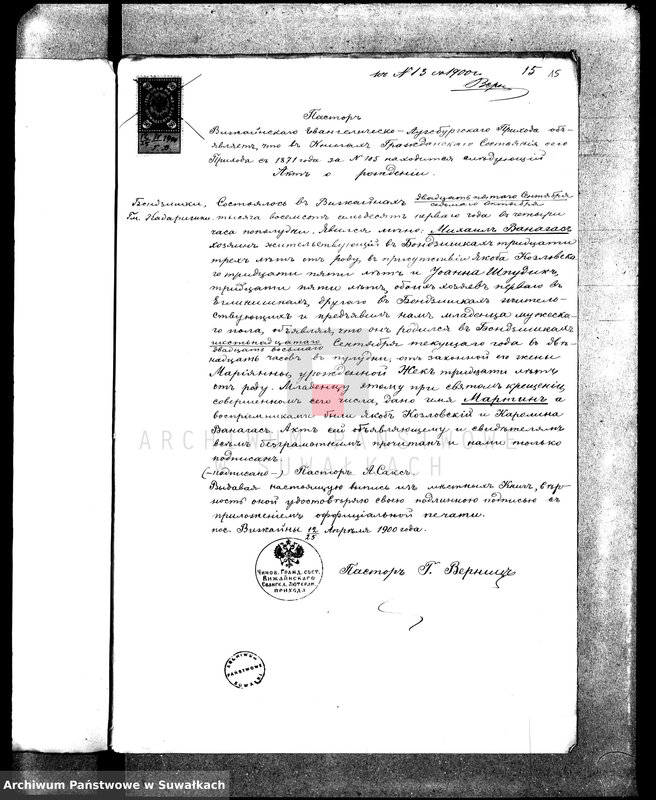 къ № 13 за 1900 г. 15 15
Верн
Пасторъ
Вижайнскаго Евангелическо-Аугсбургскаго Прихода объ-
являетъ, что въ Книгахъ Гражданскаго Состоянія сего
Прихода съ 1871 года за № 105 находится слѣдующій
Актъ о рожденіи.
Бондзишки, Состоялось въ Вижайнахъ двадцать пятаго Сентября
седьмаго Октября
Гм. тысяча восемьсотъ семьдесятъ перваго года въ четыре
часа пополудни. Явился лично: Михаилъ Ванагасъ
хозяинъ жительствующій въ Бондзишкахъ тридцати
трехъ лѣтъ отъ роду, въ присутствіи Якова Козловска-
го тридцати пяти лѣтъ и Іоанна Шпудикъ,
тридцати пяти лѣтъ, обоихъ хозяевъ перваго въ
другаго въ Бондзишкахъ житель-
ствующихъ и предъявилъ намъ младенца мужеска-
го пола, объявляя, что онъ родился въ Бондзишкахъ
шестьнадцатаго
двадцать восьмаго Сентября текущаго года въ двѣ-
надцать часовъ въ полудни, отъ законной его жены
Маріянны, урожденной Жекъ тридцати лѣтъ
отъ роду. Младенцу этому при святомъ крещеніи,
совершенномъ сего числа, дано имя Мартинъ, а
воспріемниками были Якобъ Козловскій и Каролина
Ванагасъ. Актъ сей объявляющему и свидѣтелямъ
всѣмъ безграмотнымъ прочитанъ и нами только
подписанъ.
(-подписано-) Пасторъ А. Саксъ.
Выдавая настоящую выпись изъ мѣстныхъ Книгъ, вѣр-
ность оной удостовѣряю своею подлинною подписью съ
приложеніемъ оффиціальной печати.
пос. Вижайны 12/25 Апрѣля 1900 года.
Чинов. Гражд. сост.
Вижайнскаго
Евангел. Лютеран.
прихода
Пасторъ Г. Верницъ
ARCHIWUM PAŃSTWOWE
W SUWAŁKACH
ARCHIWUM
PAŃSTWOWE
SUWAŁKI
Archiwum Państwowe w Suwałkach